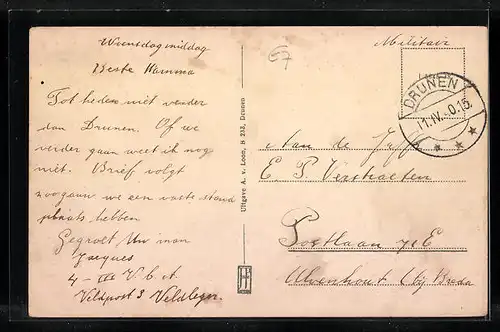 Woensdagmiddag
Beste Mamma
Tot heden niet verder
dan Drunen. Of we
verder gaan weet ik nog
niet. Brief volgt
zoogauw we een vaste stand
plaats hebben
Gegroet Uw zoon
Jacques
4-III
Veldpost 3
Uitgave A. v. Loon, B 233, Drunen
E7
Militair
DRUNEN
Aan de
E. P. Verstraeten
Postlaan
Ulvenhout bij Breda